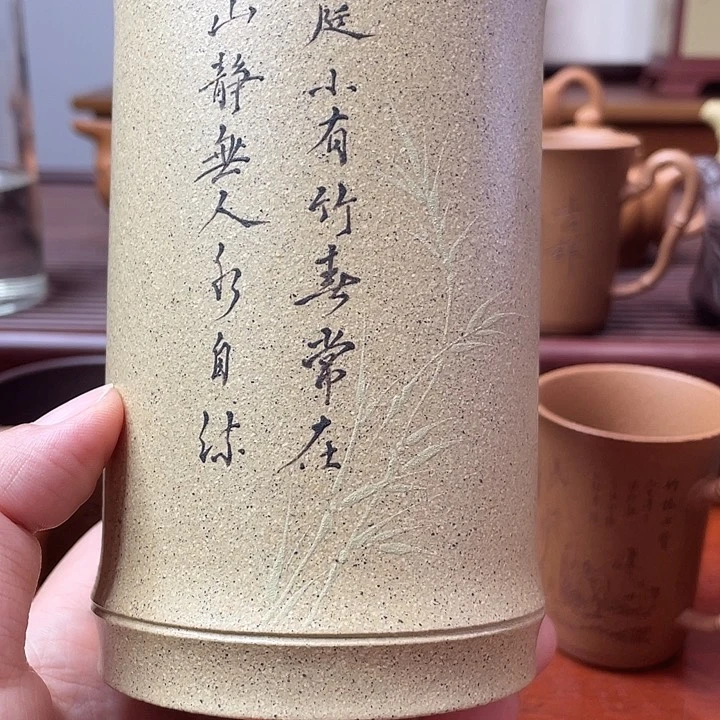 庭小有竹春常在
山静無人水自流